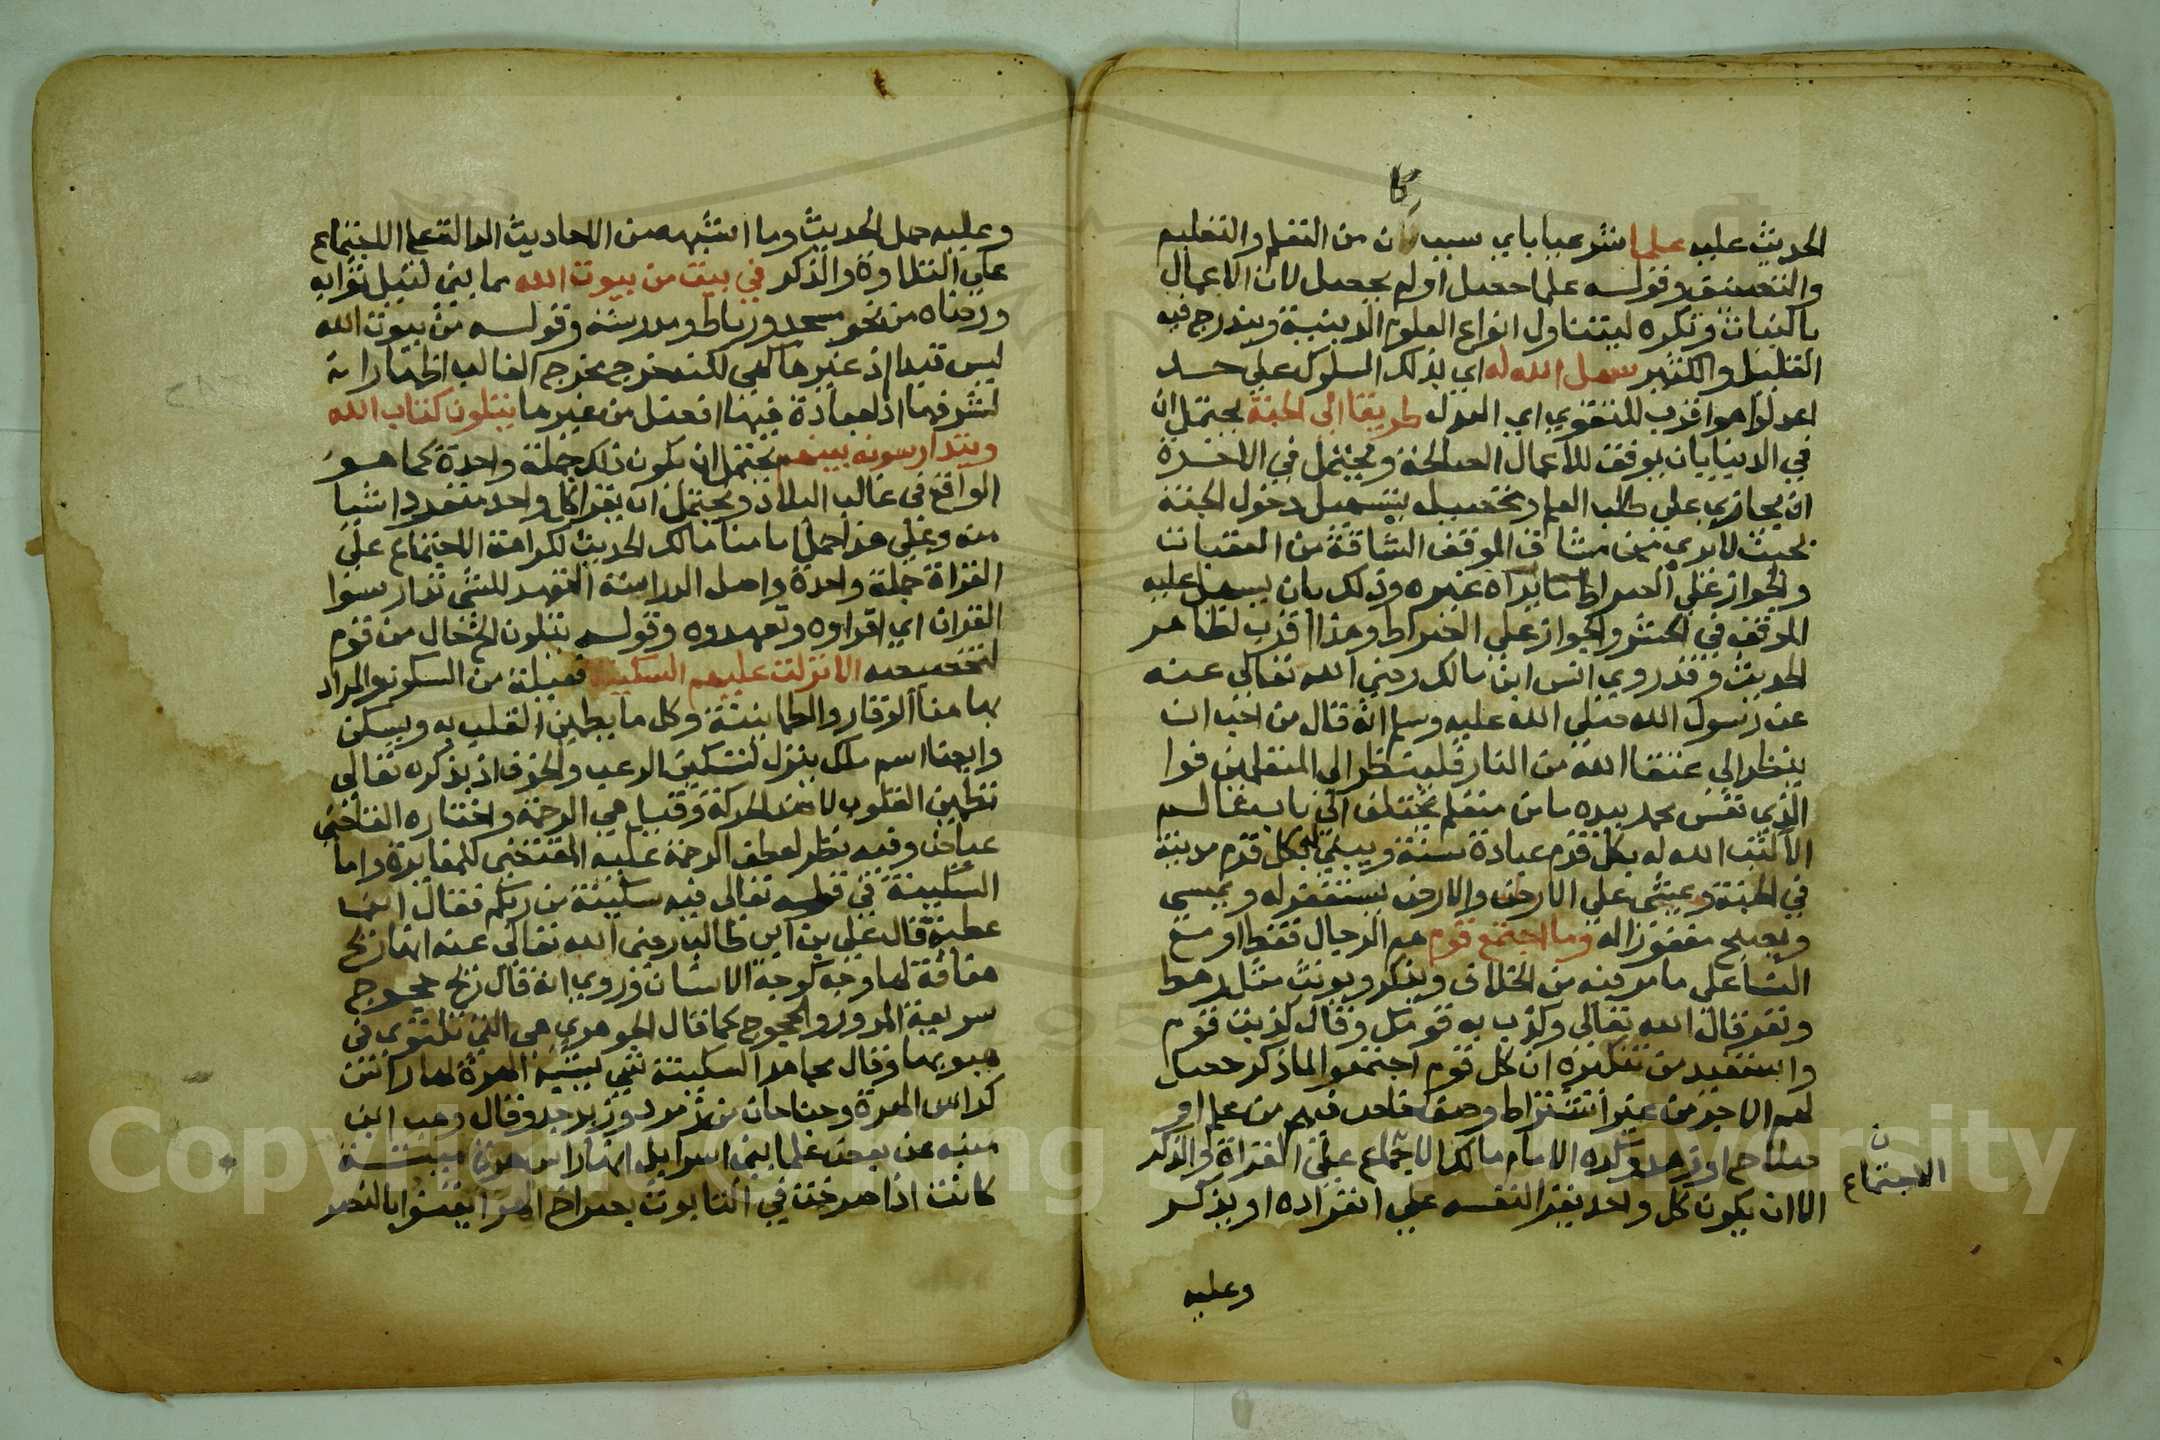 كا
الحديث عليه علما شرعيا باي سبب كان من التعلم والتعليم
والتصنيف وقوله علما حصل او لم يحصل لان الاعمال
بالنيات ونكره ليتناول انواع العلوم الدينية ويندرج فيه
القليل والكثير سهل الله له اي بذلك المسلوك علي حد
اعدلوا هو اقرب للتقوي اي العدل طريقا الي الجنة يحتمل ان
في الدنيا بان يوفق للاعمال الصالحة ويحتمل في الاخرة
ان يجازي علي طلب العلم وتحصيله بتسهيل دخول الجنة
بحيث لا يري من مشاق الموقف الشاقة من العقبات
والجواز علي الصراط ما يراه غيره وذلك بان يسهل عليه
الموقف في الحشر والجواز علي الصراط وهذا اقرب لظاهر
الحديث وقد روي انس ابن مالك رضي الله تعالي عنه
عن رسول الله صلي الله عليه وسلم انه قال من احب ان
ينظر الي عتقا الله من النار فلينظر الي المتعلمين فوا
الذي نفس محمد بيده ما من متعلم يختلف الي باب عالم
الا كتب الله له بكل قدم عبادة سنة ويبني له بكل قدم مدينة
في الجنة ويمشي علي الارض والارض تستغفر له ويمسي
ويصبح مغفورا له وما اجتمع قوم هم الرجال فقط او مع
النسا علي ما مر فيه من الخلاف ويذكر ويونث مثل رهط
ونفر قال الله تعالي وكذب به قومك وقال كذبت قوم
واستفيد من تنكيره ان كل قوم اجتمعوا لما ذكر حصل
لهم الاجر من غير اشتراط وصف خاص فيهم من علم او
صلاح او زهد وكره الامام مالك الاجتماع علي القراة والذكر
الاجتماع
الا ان يكون كل واحد يقرا لنفسه علي انفراده او يذكر
وعليه
وعليه حمل الحديث وما اشبهه من الاحاديث الدالة علي الاجتماع
علي التلاوة والذكر في بيت من بيوت الله مما بني لنيل ثوابه
ورضاه من نحو مسجد ورباط ومدرسة وقوله من بيوت الله
ليس قيدا اذ غيرها كهي لكنه خرج مخرج الغالب اظهارا
لشرفها اذ العبادة فيها افضل من غيرها يتلون كتاب الله
ويتدارسونه بينهم يحتمل ان يكون ذلك جملة واحدة كما هو
الواقع في غالب البلاد ويحتمل ان يقرا كل واحد منفردا شيا
منه وعلي هذا حمل امامنا مالك الحديث لكراهة الاجتماع علي
القراة جملة واحدة واصل الدراسة التعهد للشي تدارسوا
القران اي اقراوه وتعهدوه وقوله يتلون الخ حال من قوم
لتخصيصه الا نزلت عليهم السكينة فعيلة من السكون والمراد
بها هنا الوقار والطمانينة وكل ما يطمين القلب به ويسكن
وايضا اسم ملك ينزل لتسكين الرعب والخوف اذ بذكره تعالي
تطمين القلوب لا ضد الحركة وقيل هي الرحمة واختاره القاضي
عياض وفيه نظر لعطف الرحمة عليه المقتضي للمغايرة واما
السكينة في قوله تعالي فيه سكينة من ربكم فقال ابن
عطية قال علي بن ابي طالب رضي الله تعالي عنه انها ريح
هفافة لها وجه كوجه الانسان وروي انه قال ريح خجوج
سريعة المرور والخجوج كما قال الجوهري هي التي تلتوي في
هبوبها وقال مجاهد السكينة شي يشبه الهرة لها راس
كراس الهرة وجناحان من زمرد وزبرجد وقال وهب ابن
منبه عن بعض علما بني اسرايل انها راس هرة ميتة
كانت اذا صرخت في التابوت بصراخ الهر ايقنوا بالنصر